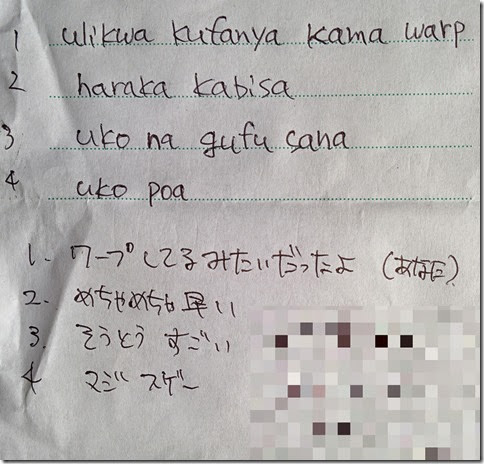 1 ulikwa kufanya kama warp
2 haraka kabisa
3 uko na gufu sana
4 uko poa
1. ワープしてるみたいだったよ (あなた)
2. めちゃめちゃ早い
3. そうとう すごい
4 マジ スゲー